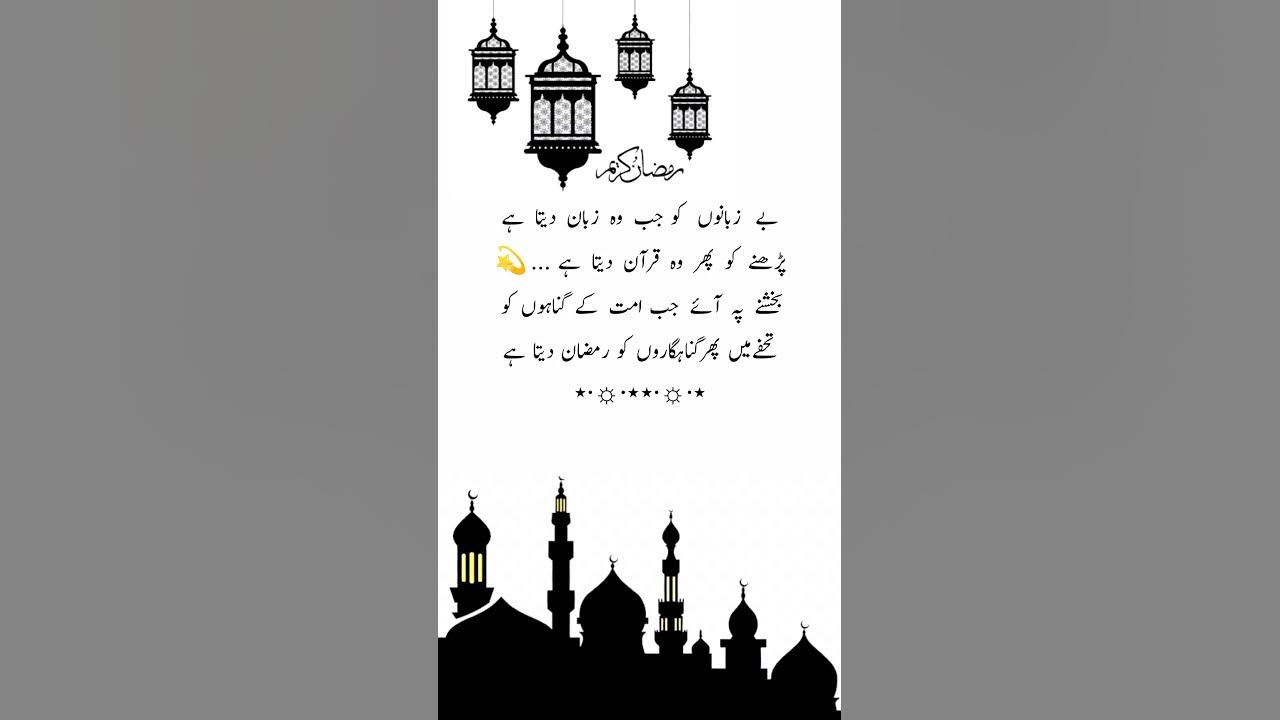 رمضان كريم
بے زبانوں کو جب وہ زبان دیتا ہے
پڑھنے کو پھر وہ قرآن دیتا ہے ... 💫
بخشنے پہ آئے جب امت کے گناہوں کو
تحفے میں پھر گناہگاروں کو رمضان دیتا ہے
★•☼•★★•☼•★